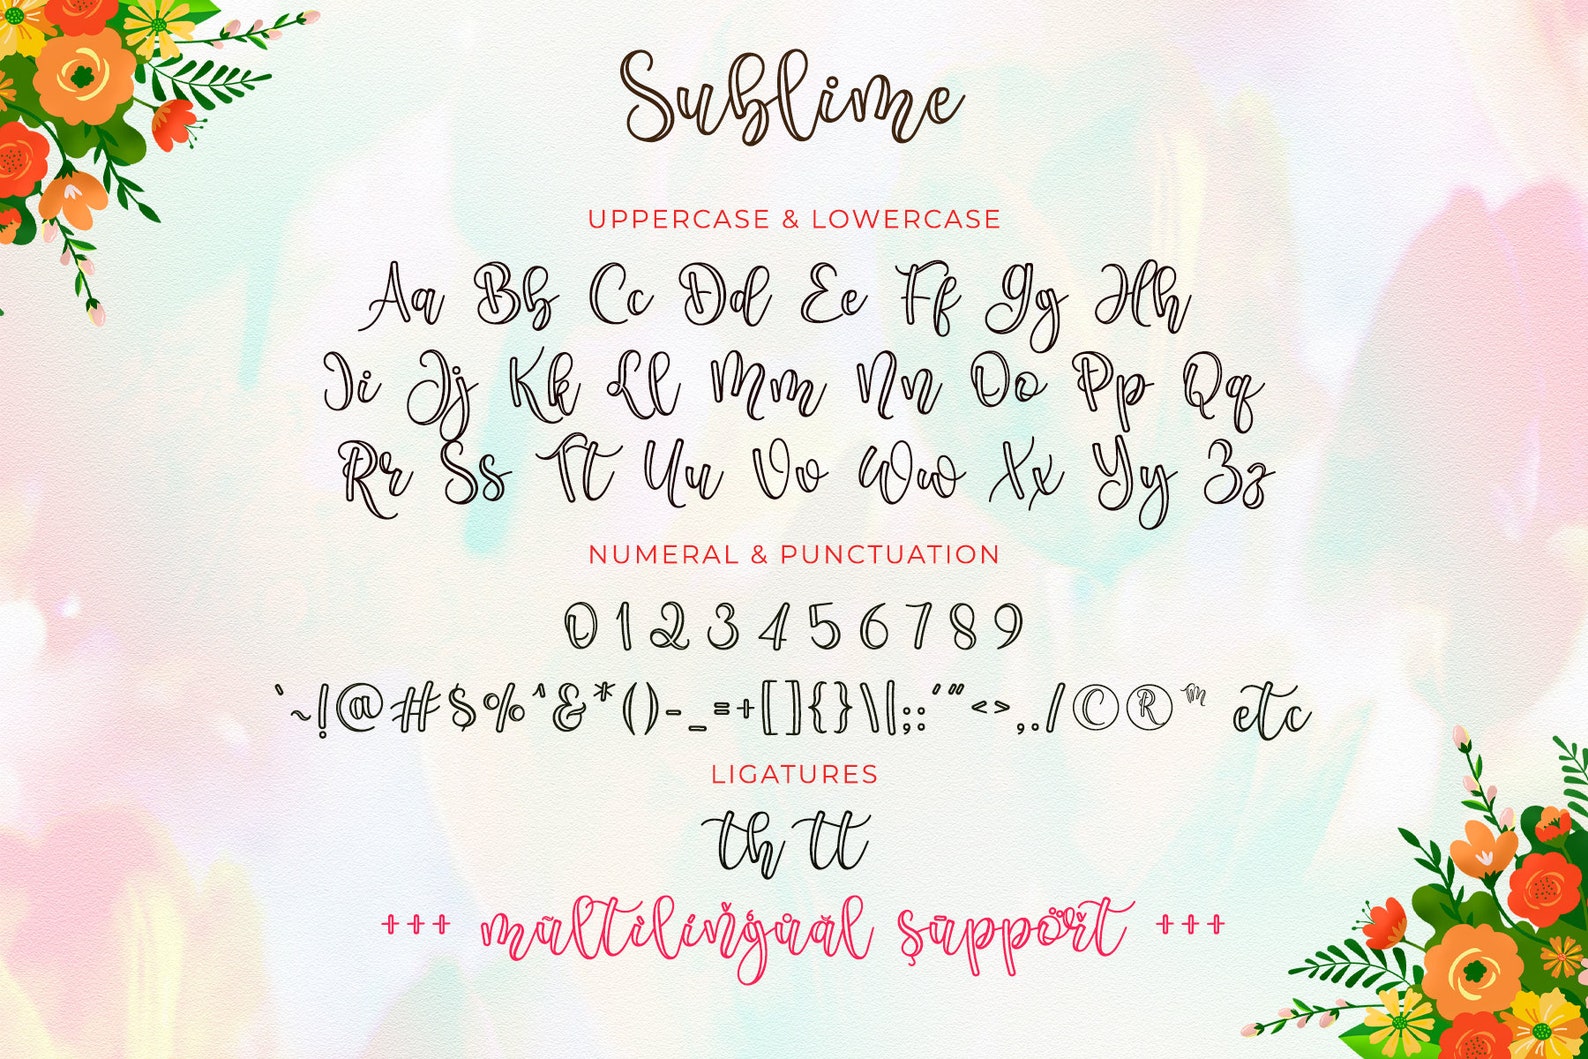 Sublime
UPPERCASE & LOWERCASE
Aa Bb Cc Dd Ee Ff Gg Hh
Ii Jj Kk Ll Mm Nn Oo Pp Qq
Rr Ss Tt Uu Vv Ww Xx Yy Zz
NUMERAL & PUNCTUATION
0 1 2 3 4 5 6 7 8 9
`~!@#$%^&*()-_=+[]{}\|;:'"<>,./©®™ etc
LIGATURES
th tt
+++ mũltiliňģůăl şūppöřt +++